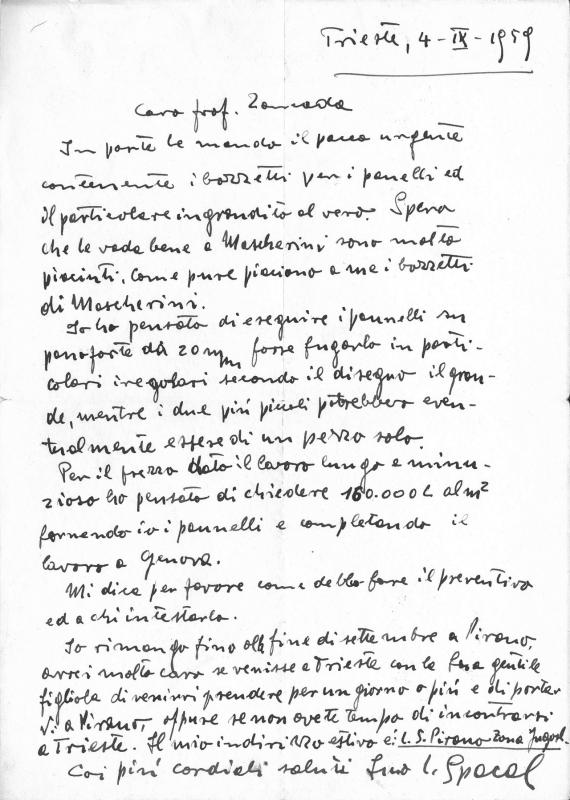 Trieste, 4-IX-1959
Caro prof. Zoncada
In parte le mando il pacco urgente
contenente i bozzetti per i panelli ed
il particolare ingrandito al vero. Spero
che le vada bene a Mascherini sono molto
piaciuti, come pure piaciono a me i bozzetti
di Mascherini.
Io ho pensato di eseguire i pannelli su
panoforte da 20 mm forse fugarlo in parti-
colari iregolari secondo il disegno il gran-
de, mentre i due più piccoli potrebbero even-
tualmente essere di un pezzo solo.
Per il prezzo dato il lavoro lungo e minu-
zioso ho pensato di chiedere 160.000 L al m²
fornendo io i pannelli e completando il
lavoro a Genova.
Mi dica per favore come debbo fare il preventivo
ed a chi intestarlo.
Io rimango fino alla fine di settembre a Pirano,
avrei molto caro se venisse a Trieste con la Sua gentile
figliola di venirvi prendere per un giorno o più e di portar
Vi a Pirano, oppure se non avete tempo di incontrarsi
a Trieste. Il mio indirizzo estivo è: L.S. Pirano Zona Jugosl.
Coi più cordiali saluti Suo L. Spacal